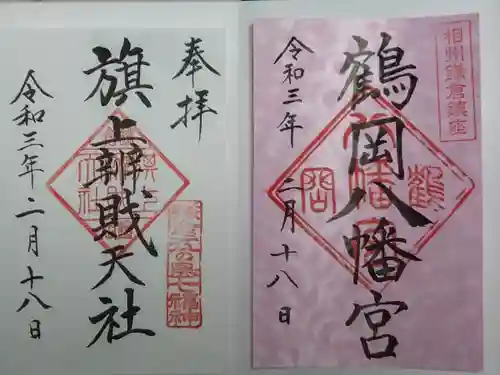 相州鎌倉鎮座
鶴岡八幡宮
令和三年
二月十八日
奉拝
旗上辨財天社
令和三年二月十八日